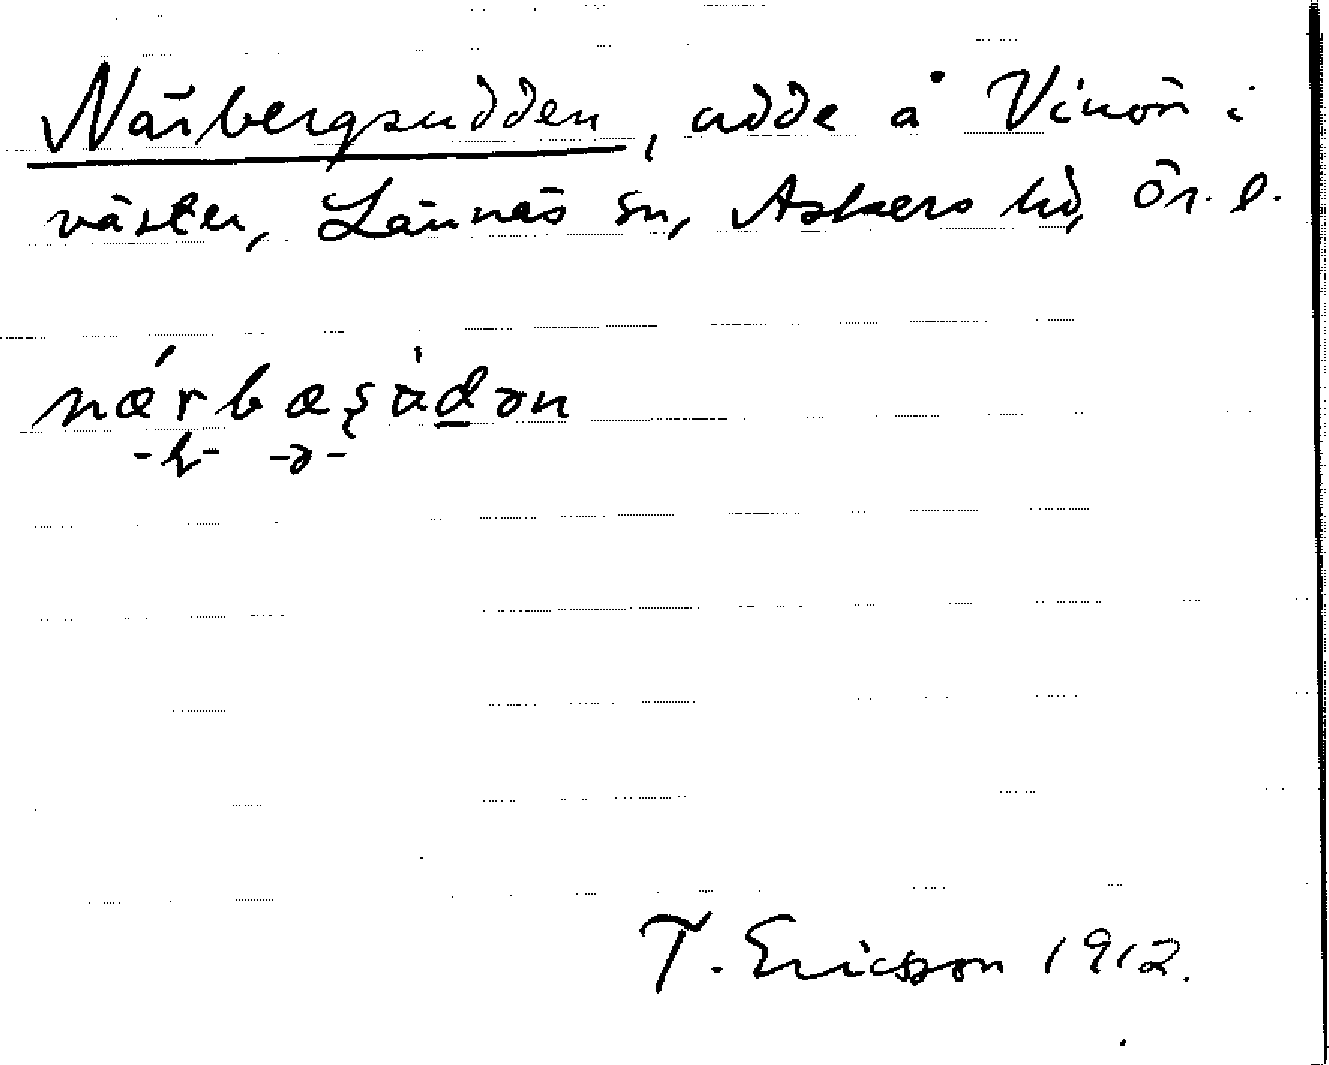 Närbergsudden, udde å Vinön i
väster, Lännäs sn, Askers hd, Ör. l.
nǽrbaʂùdən
-ə-
T. Ericsson 1912.